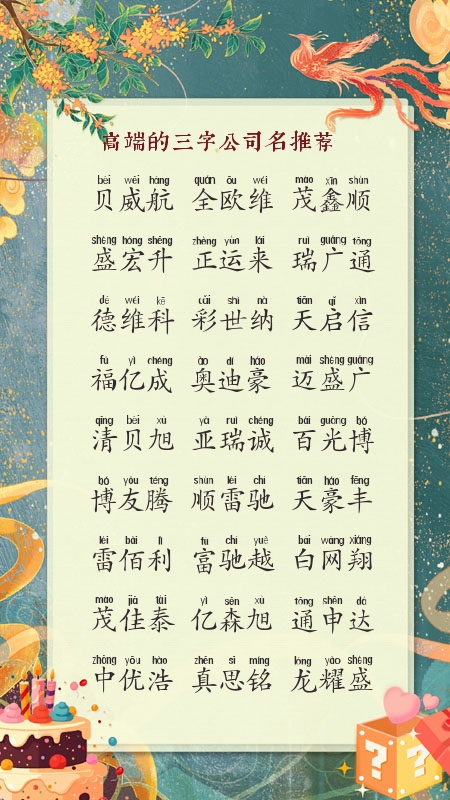 高端的三字公司名推荐
bèi wēi háng quán ōu wéi mào xīn shùn
贝威航 全欧维 茂鑫顺
shèng hóng shēng zhèng yùn lái ruì guǎng tōng
盛宏升 正运来 瑞广通
dé wéi kē cǎi shì nà tiān qǐ xìn
德维科 彩世纳 天启信
fú yì chéng ào dí háo mài shèng guǎng
福亿成 奥迪豪 迈盛广
qīng bèi xù yà ruì chéng bǎi guāng bó
清贝旭 亚瑞诚 百光博
bó yǒu téng shùn léi chí tiān háo fēng
博友腾 顺雷驰 天豪丰
léi bǎi lì fù chí yuè bái wǎng xiáng
雷佰利 富驰越 白网翔
mào jiā tài yì sēn xù tōng shēn dá
茂佳泰 亿森旭 通申达
zhōng yōu hào zhēn sī míng lóng yào shèng
中优浩 真思铭 龙耀盛
? ?